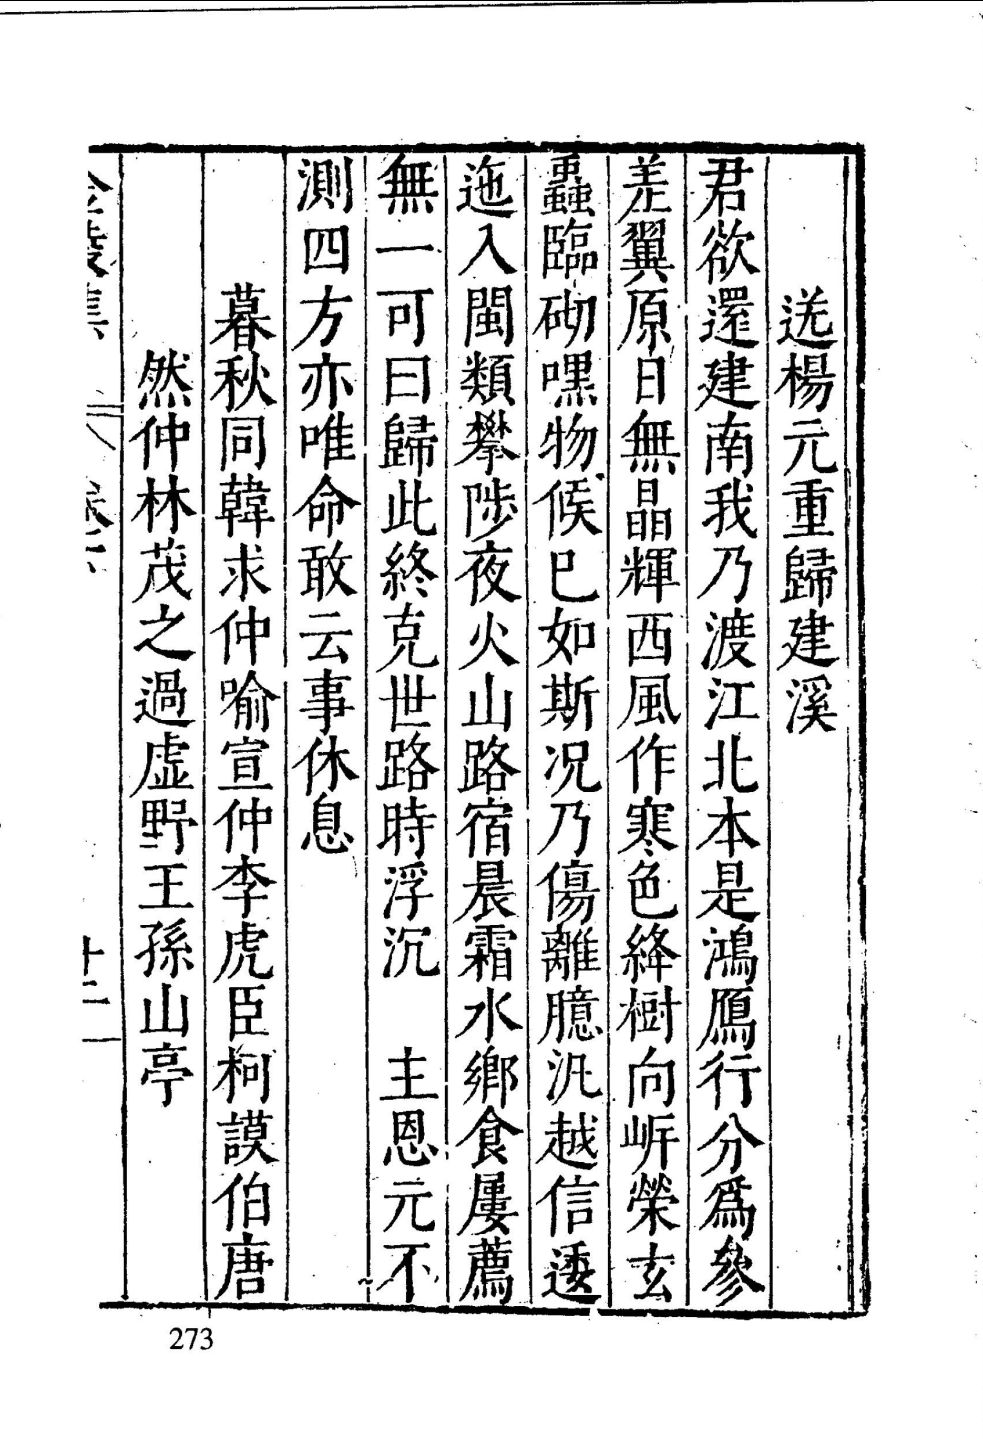 送楊元重歸建溪
君欲還建南我乃渡江北本是鴻鴈行分爲參
差翼原日無晶輝西風作寒色絳樹向岍榮玄
蟲臨砌嘿物候巳如斯况乃傷離臆汎越信逶
迤入閩類攀陟夜火山路宿晨霜水鄉食屢薦
無一可曰歸此終克世路時浮沉　主恩元不
測四方亦唯命敢云事休息
暮秋同韓求仲喻宣仲李虎臣柯謨伯唐
然仲林茂之過虛野王孫山亭
十二
273